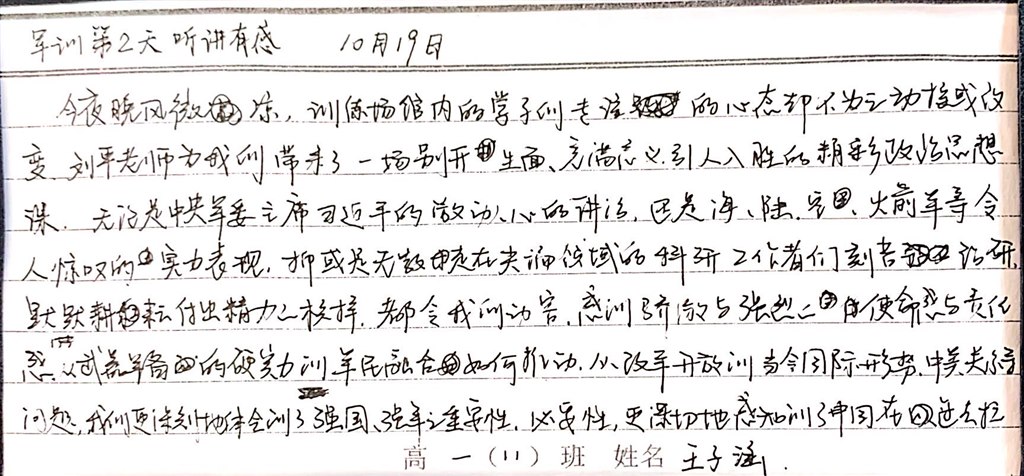 军训第2天 听讲有感 10月19日
今夜晚风微凉，训练场馆内的学子们专注的心态却不为之动摇或改
变 刘平老师为我们带来了一场别开生面、充满意义引人入胜的精彩政治思想
课．无论是中央军委主席习近平的激动人心的讲话，还是海、陆、空、火箭军等令
人惊叹的实力表现，抑或是无数走在尖端领域的科研工作者们刻苦钻研，
默默耕耘付出精力，都令我们动容，感到骄傲与使命感与责任
感．从武器军备的硬实力到军民融合如何推动．从改革开放到当今国际形势，中美关系等
问题，我们更深刻地体会到了强国、强军之重要性，必要性，更深切地感知到了中国在
高 一（11）班 姓名 王子涵